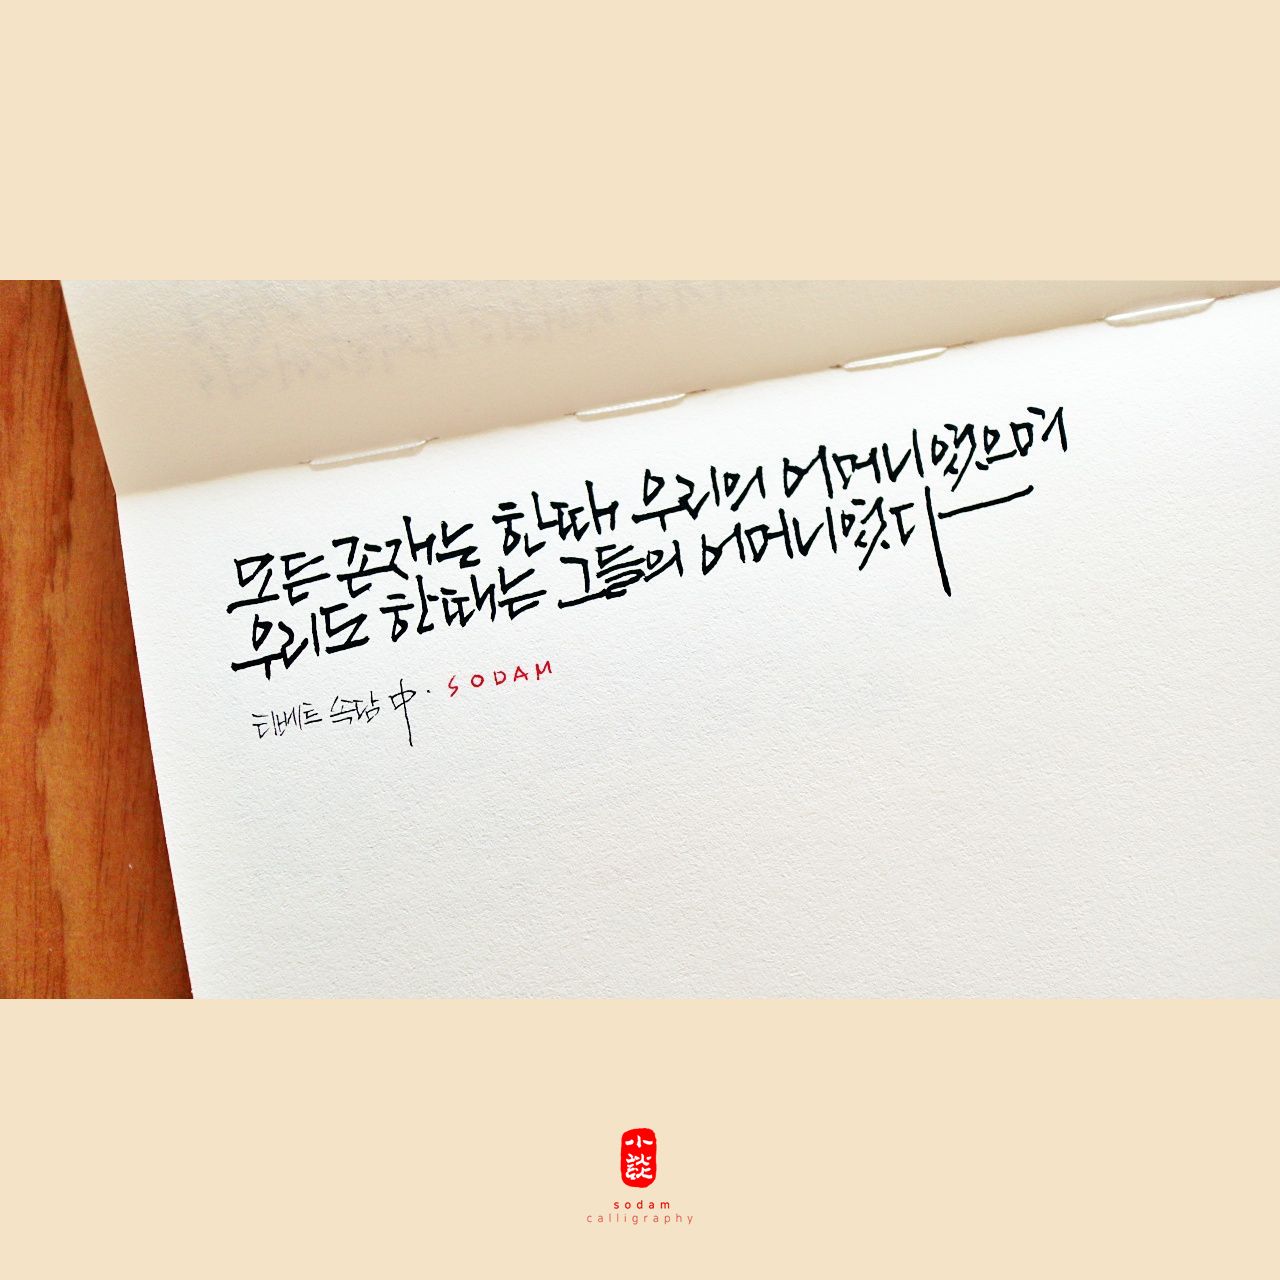 모든 존재는 한때 우리의 어머니였으며
우리도 한때는 그들의 어머니였다
티베트 속담 中. SODAM
小
談
sodam
calligraphy